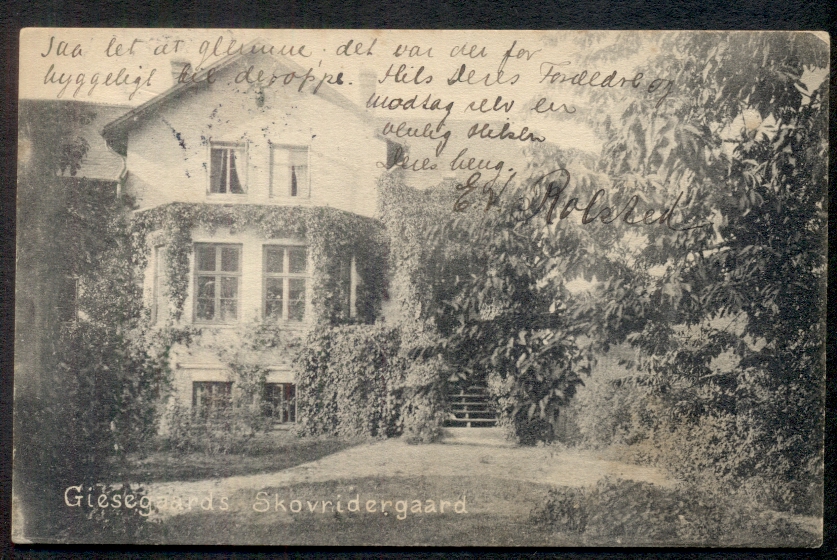 Jaa let at glemme det var der for
hyggeligt til deroppe. Hils Deres Forældre og
modtag selv en
venlig Hilsen
Deres heng.
E. Rolsted
Giesegaards Skovridergaard